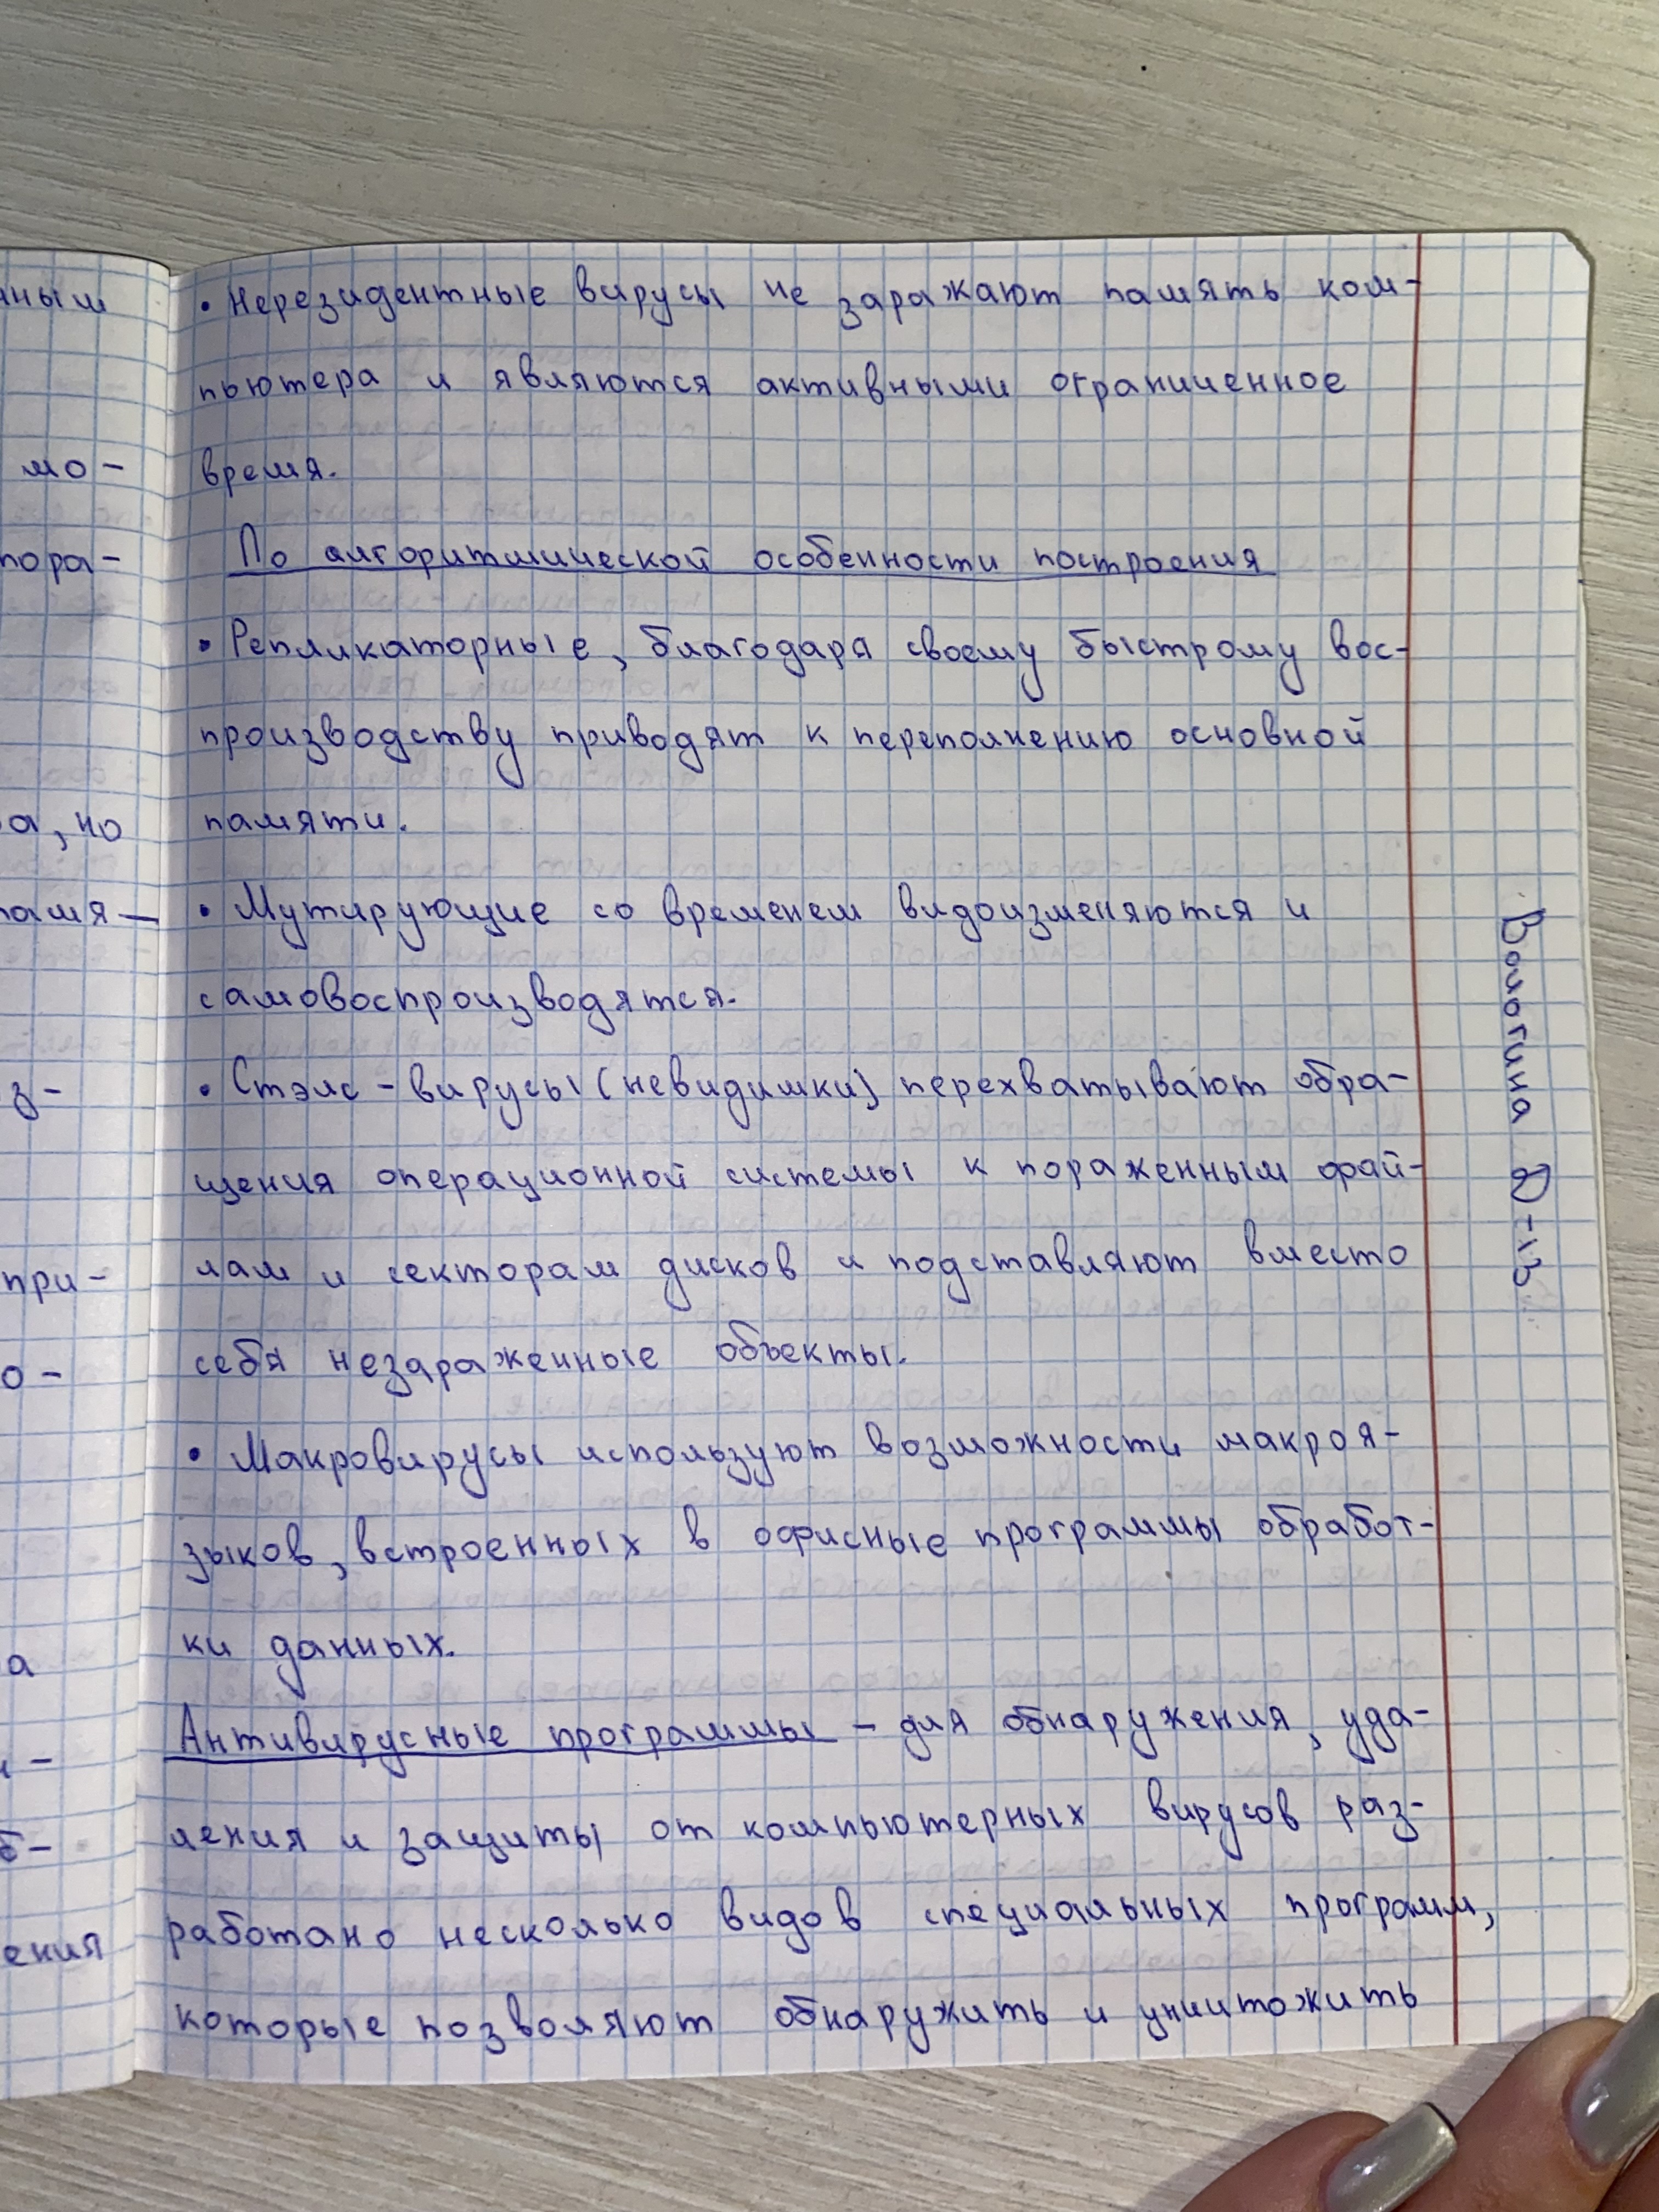 • Нерезидентные вирусы не заражают память ком-
пьютера и являются активными ограниченное
время.
По алгоритмической особенности построения
• Репликаторные, благодаря своему быстрому вос-
производству приводят к переполнению основной
памяти.
• Мутирующие со временем видоизменяются и
самовоспроизводятся.
• Стэлс - вирусы (невидимки) перехватывают обра-
щения операционной системы к пораженным фай-
лам и секторам дисков и подставляют вместо
себя незараженные объекты.
• Макровирусы используют возможности макроя-
зыков, встроенных в офисные программы обработ-
ки данных.
Антивирусные программы - для обнаружения, уда-
ления и защиты от компьютерных вирусов раз-
работано несколько видов специальных программ,
которые позволяют обнаружить и уничтожить
нным
мо-
пора-
а, но
памя-
з-
при-
о-
а
б-
ения
Вологина